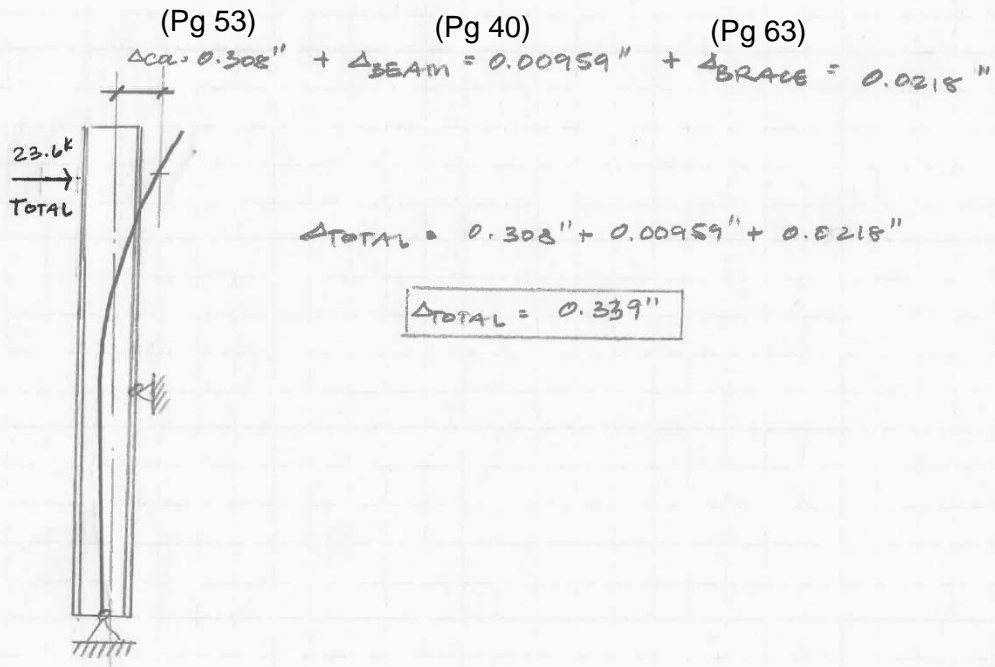 (Pg 53) (Pg 40) (Pg 63)
Δca = 0.308" + ΔBEAM = 0.00959" + ΔBRACE = 0.0218"
23.6k
TOTAL
ΔTOTAL = 0.308" + 0.00959" + 0.0218"
ΔTOTAL = 0.339"